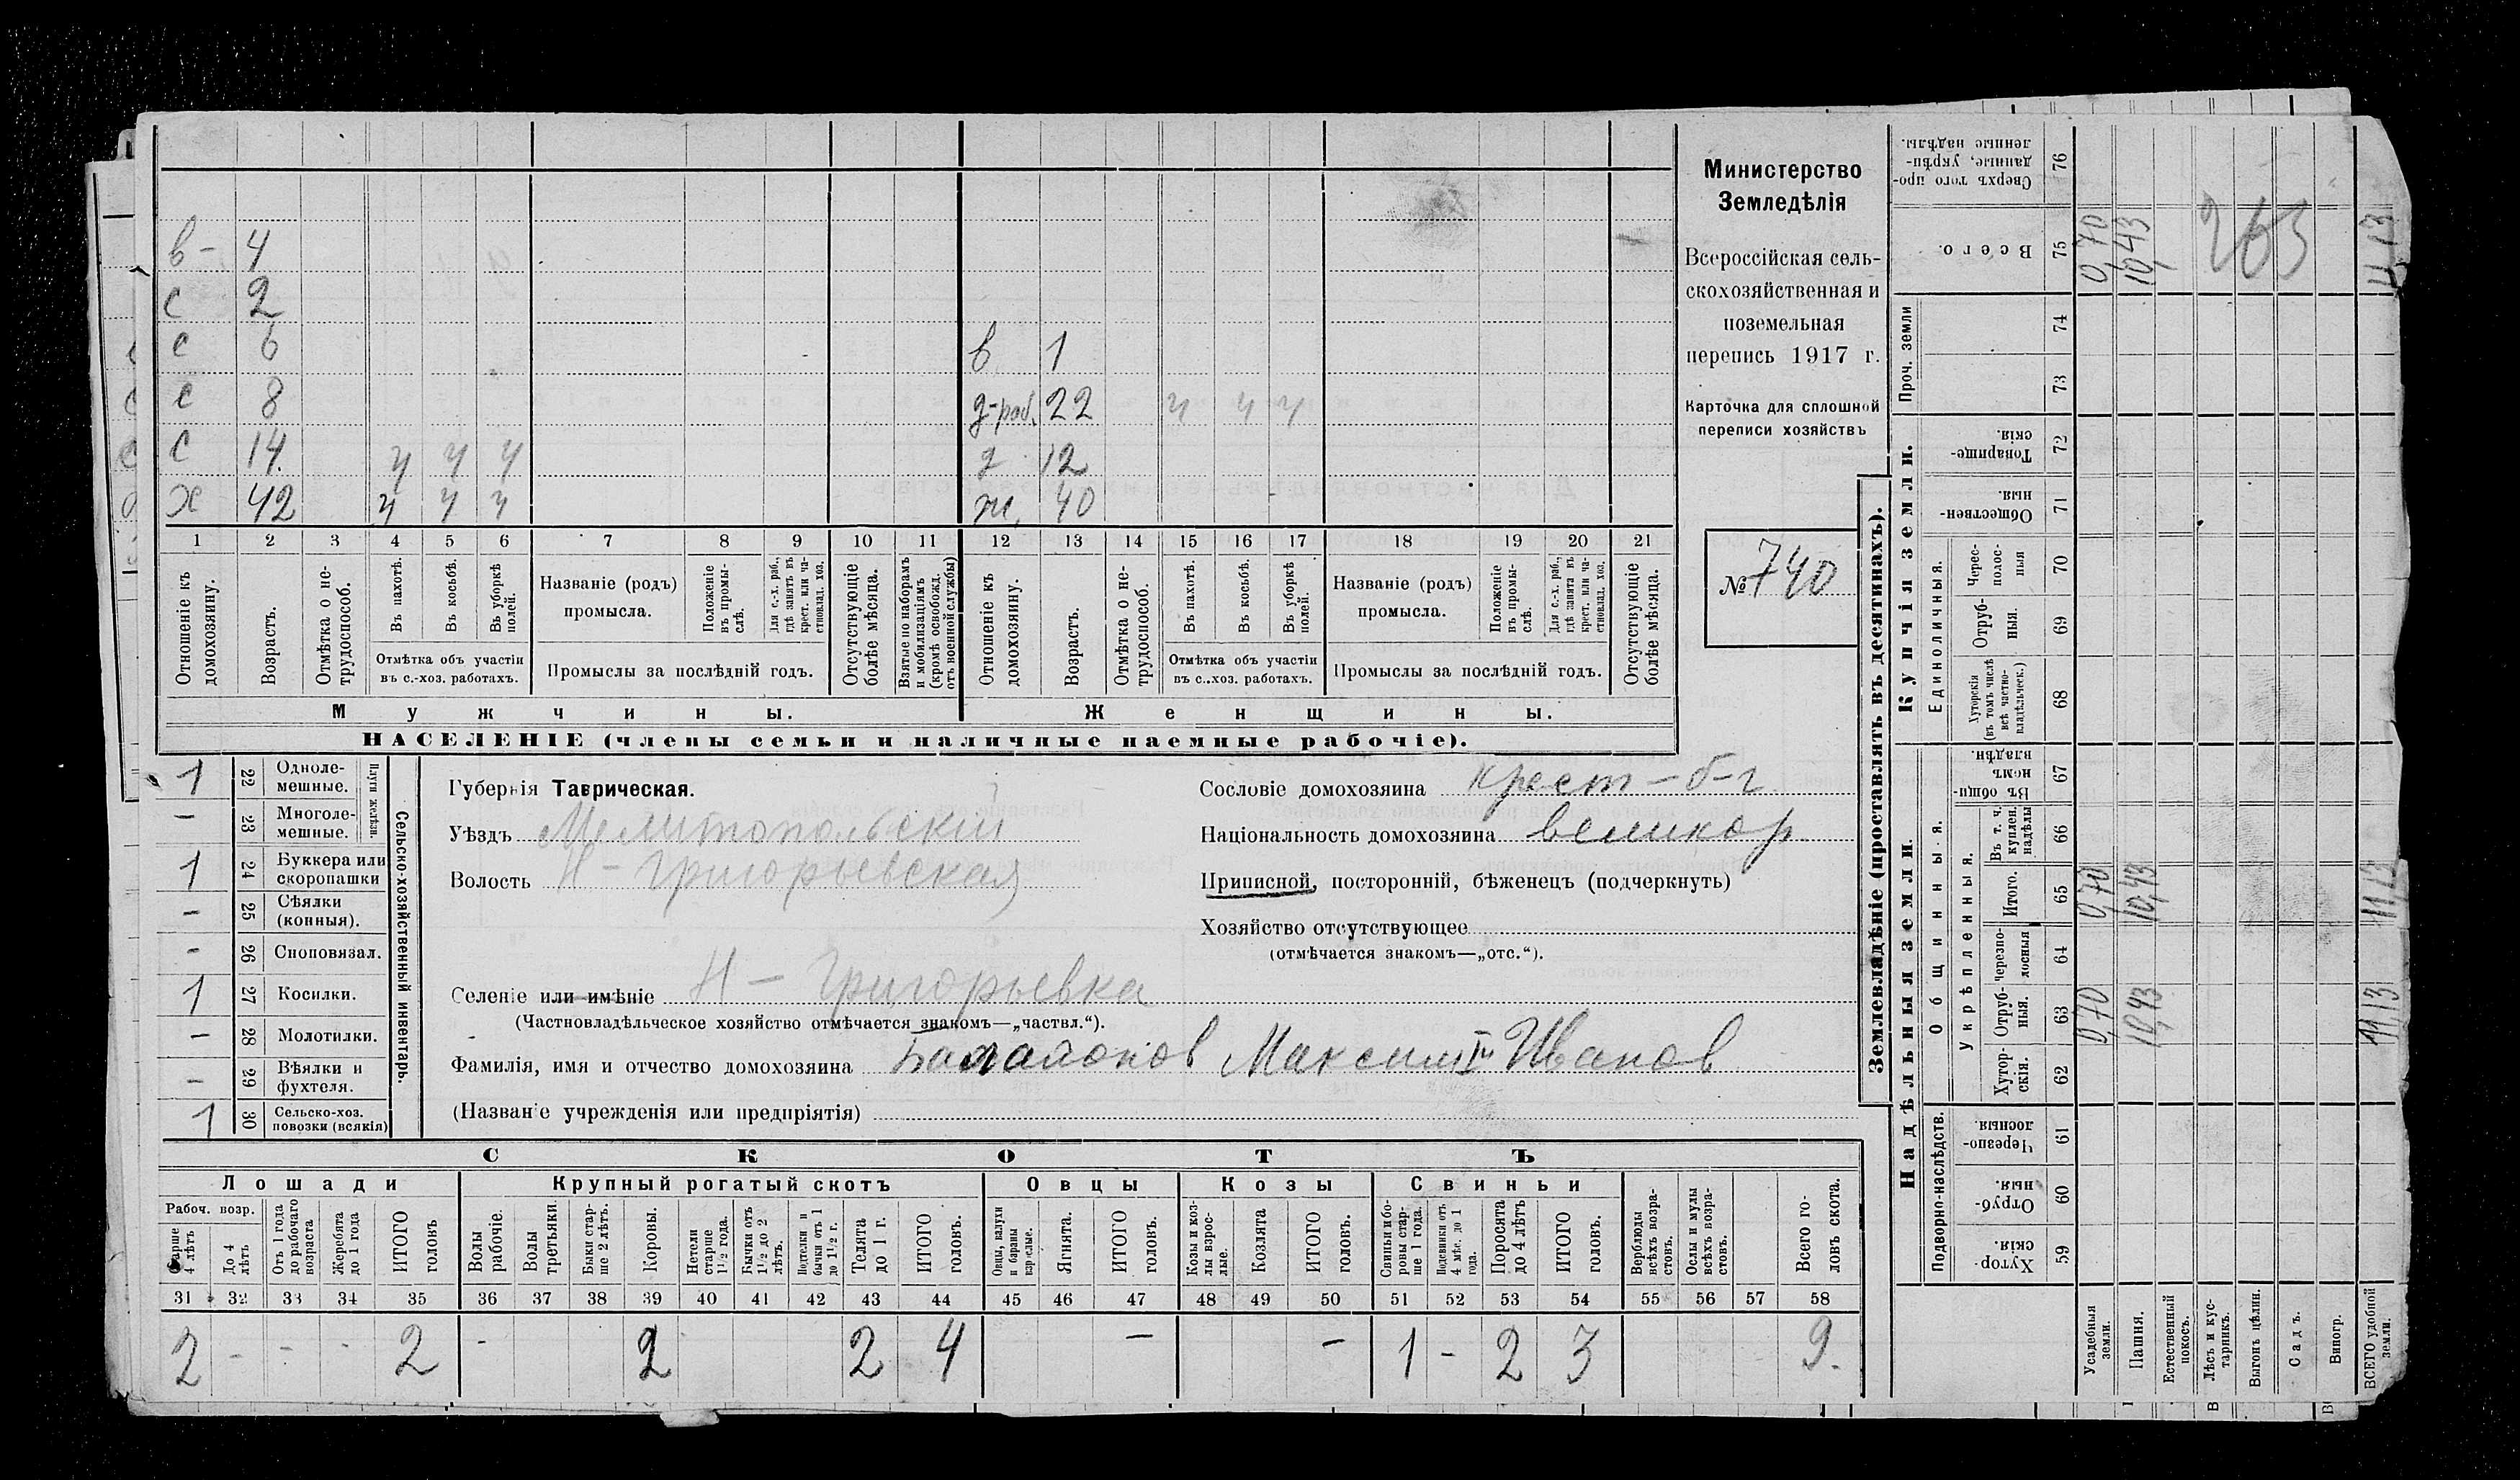 в - 4
с 2
с 6 в 1
с 8 д-раб. 22 ч ч ч
с 14. ч ч ч д 12
х 42 ч ч ч ж. 40
1 2 3 4 5 6 7 8 9 10 11 12 13 14 15 16 17 18 19 20 21
Отношеніе къ домохозяину.
Возрастъ.
Отмѣтка о нетрудоспособ.
Въ пахотѣ.
Въ косьбѣ.
Въ уборкѣ полей.
Отмѣтка объ участіи
въ с.-хоз. работахъ.
Названіе (родъ)
промысла.
Положеніе въ промыслѣ.
Для с.-х. раб., гдѣ занятъ въ крест. или частновлад. хоз.
Промыслы за послѣдній годъ.
Отсутствующіе болѣе мѣсяца.
Взятые по наборамъ и мобилизаціямъ (кромѣ освобожд. отъ военной службы)
Отношеніе къ домохозяину.
Возрастъ.
Отмѣтка о нетрудоспособ.
Въ пахотѣ.
Въ косьбѣ.
Въ уборкѣ полей.
Отмѣтка объ участіи
въ с..хоз. работахъ.
Названіе (родъ)
промысла.
Положеніе въ промыслѣ.
Для с.-х. раб., гдѣ занята въ крест. или частновлад. хоз.
Промыслы за послѣдній годъ.
Отсутствующіе болѣе мѣсяца.
Мужчины. Женщины.
НАСЕЛЕНІЕ (члены семьи и наличные наемные рабочіе).
Министерство
Земледѣлія
Всероссійская сель-
скохозяйственная и
поземельная
перепись 1917 г.
Карточка для сплошной
переписи хозяйствъ
№ 740
1 22 Одноле-мешные.
- 23 Многоле-мешные.
Плуги желѣзн.
1 24 Буккера или скоропашки
- 25 Сѣялки (конныя).
- 26 Сноповязал.
1 27 Косилки.
- 28 Молотилки.
- 29 Вѣялки и фухтеля.
1 30 Сельско-хоз. повозки (всякія)
Сельско-хозяйственный инвентарь.
Губернія Таврическая.
Уѣздъ Мелитопольскій
Волость Н-Григорьевская
Селеніе или имѣніе Н - Григорьевка
(Частновладѣльческое хозяйство отмѣчается знакомъ—„частвл.“).
Фамилія, имя и отчество домохозяина Максим Иванов
(Названіе учрежденія или предпріятія)
Сословіе домохозяина крест - б-г.
Національность домохозяина великор.
Приписной, посторонній, бѣженецъ (подчеркнуть)
Хозяйство отсутствующее
(отмѣчается знакомъ—„отс.“).
СКОТЪ
Лошади Крупный рогатый скотъ Овцы Козы Свиньи
Рабоч. возр.
Старше 4 лѣтъ
До 4 лѣтъ
Отъ 1 года до рабочаго возраста
Жеребята до 1 года
ИТОГО головъ
Волы рабочіе.
Волы третьяки.
Быки старше 2 лѣтъ.
Коровы.
Нетели старше 1 1/2 года.
Бычки отъ 1 1/2 до 2 лѣтъ.
Подтелки и бычки отъ 1 до 1 1/2 г.
Телята до 1 г.
ИТОГО головъ.
Овцы, валухи и бараны взрослые.
Ягнята.
ИТОГО головъ.
Козы и козлы взрослые.
Козлята
ИТОГО головъ.
Свиньи и боровы старше 1 года.
Подсвинки отъ 4 мѣс. до 1 года.
Поросята до 4 лѣтъ
ИТОГО головъ.
Верблюды всѣхъ возрастовъ.
Ослы и мулы всѣхъ возрастовъ.
Всего головъ скота.
31 32 33 34 35 36 37 38 39 40 41 42 43 44 45 46 47 48 49 50 51 52 53 54 55 56 57 58
2 - - - 2 - 2 2 4 - - 1 - 2 3 9.
Землевладѣніе (проставлять въ десятинахъ).
Купчія земли.
Надѣльныя земли.
Сверхъ того проданные, укрѣпленные надѣлы. 76
Всего. 75 0,70 10,43 11,13
263
Проч. земли 74 73
Товарищескія. 72
Общественныя. 71
Единоличныя.
Чересполосныя 70
Отрубныя. 69
Хуторскія (въ томъ числѣ всѣ частновладѣльческ.) 68
Общинныя.
Въ общинномъ владѣн. 67
Укрѣпленныя.
Въ т. ч. куплен. надѣлы 66
Итого. 65 0,70 10,43 11,13
Черезполосныя 64
Отрубныя. 63 0,70 10,43 11,13
Хуторскія. 62
Подворно-наслѣдств.
Черезполосныя 61
Отрубныя. 60
Хуторскія. 59
Усадебныя земли.
Пашня.
Естественный покосъ.
Лѣсъ и кустарникъ.
Выгонъ цѣлин.
Садъ.
Виногр.
ВСЕГО удобной земли.